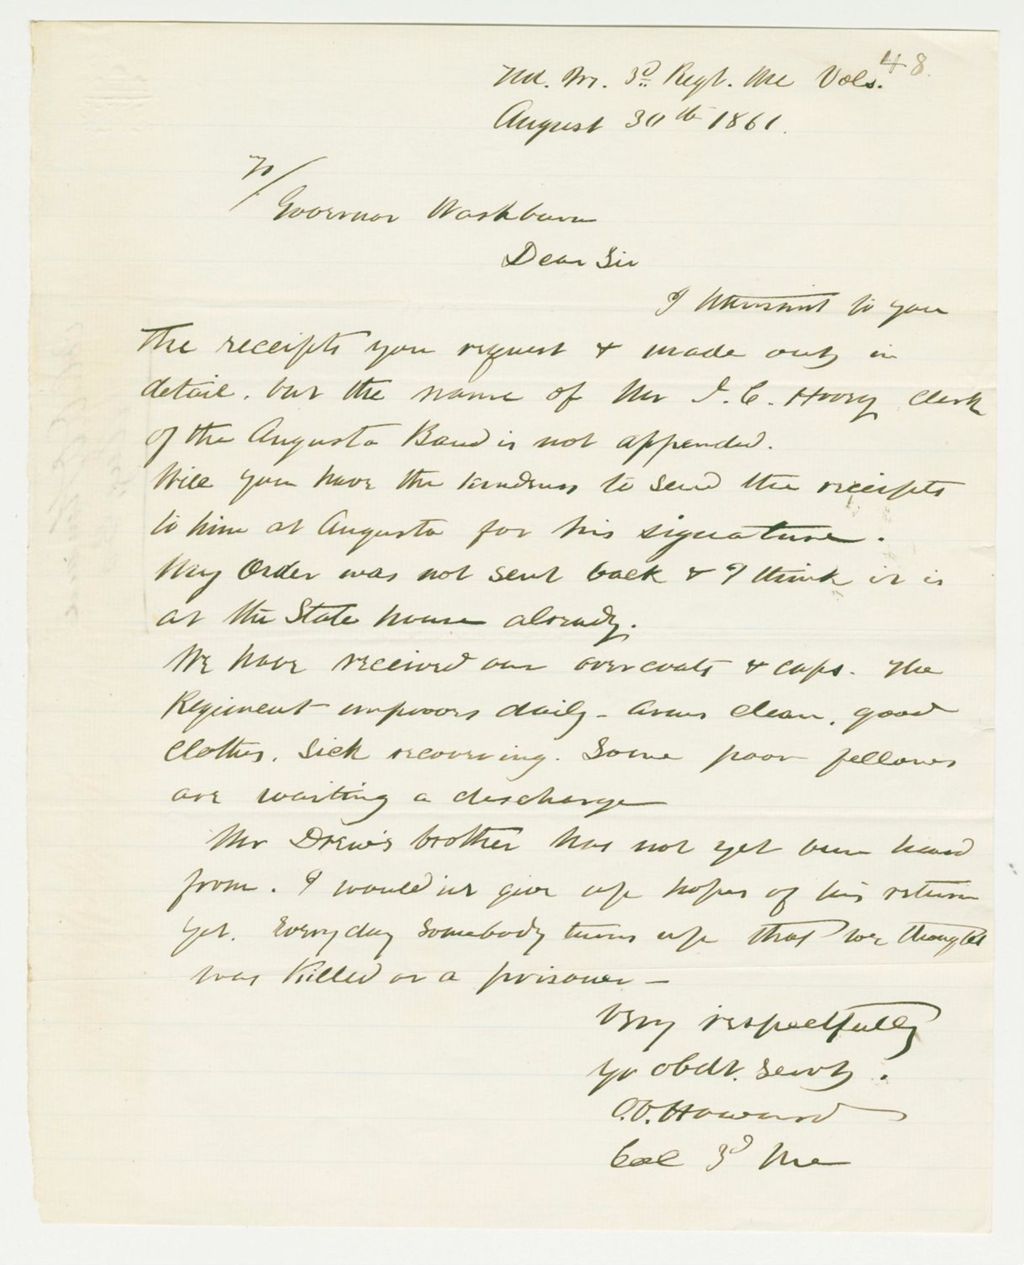 48.
Hd. Qrs. 3d Regt. Me Vols.
August 30th 1861.
To/
Governor Washburn
Dear Sir
I transmit to you
the receipts you request & made out in
detail, but the name of Mr J. C. clerk
of the Augusta Band is not appended.
Will you have the kindness to send the receipts
to him at Augusta for his signature.
My Order was not sent back & I think it is
at the State house already.
We have received our overcoats & caps. The
Regiment improves daily - arms clean, good
clothes, sick recovering. Some poor fellows
are waiting a discharge
Mr Drew's brother has not yet been heard
from. I would'nt give up hopes of his return
yet. Every day somebody turns up that we thought
was killed or a prisoner -
Very respectfully
Yr obdt. servt.
O. O. Howard
Col 3d Me